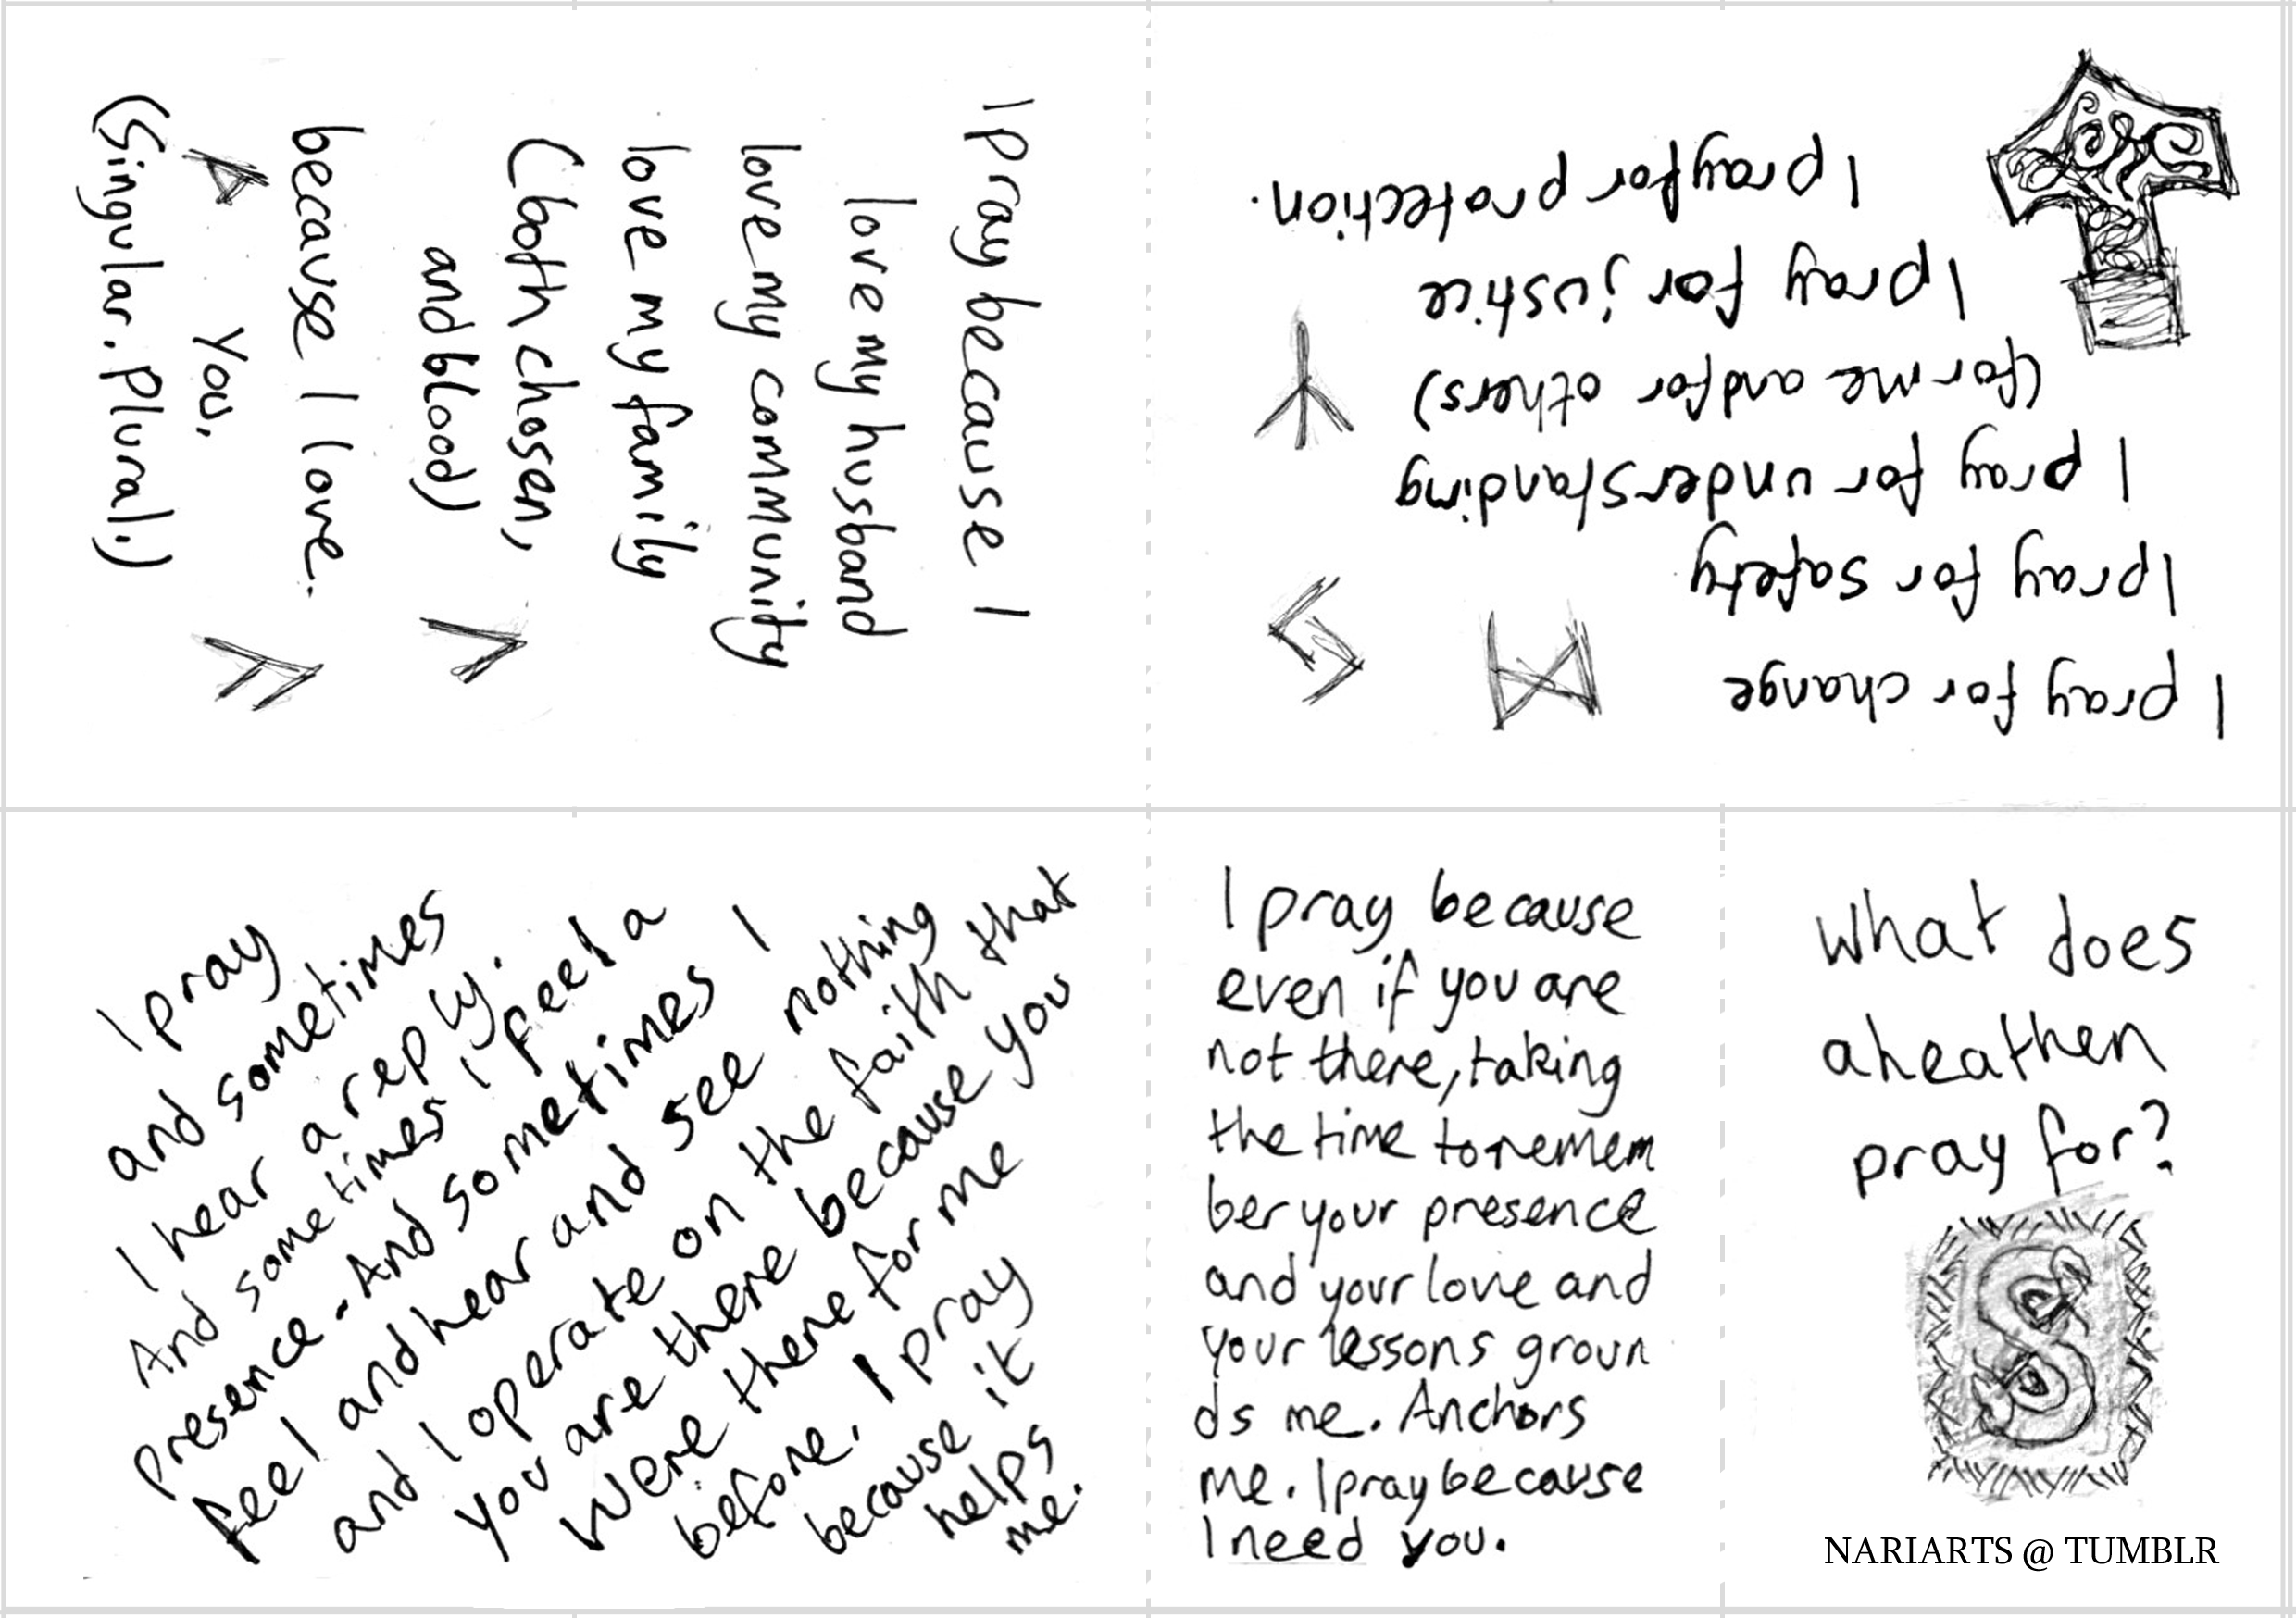 What does
a heathen
pray for?
NARIARTS @ TUMBLR
I pray for change
ᛞ ᛋ
I pray for safety
I pray for understanding
(for me and for others)
ᛉ
I pray for justice
I pray for protection.
I pray because I
love my husband
love my community
love my family
(both chosen,
and blood)
ᛚ
because I love.
ᚹ you. ᚨ
(Singular. Plural.)
I pray
and sometimes
I hear a reply.
And sometimes I feel a
presence - And sometimes I
feel and hear and see nothing
and I operate on the faith that
you are there because you
were there for me
before. I pray
because it
helps
me.
I pray because
even if you are
not there, taking
the time to remem
ber your presence
and your love and
your lessons groun
ds me. Anchors
me. I pray because
I need you.